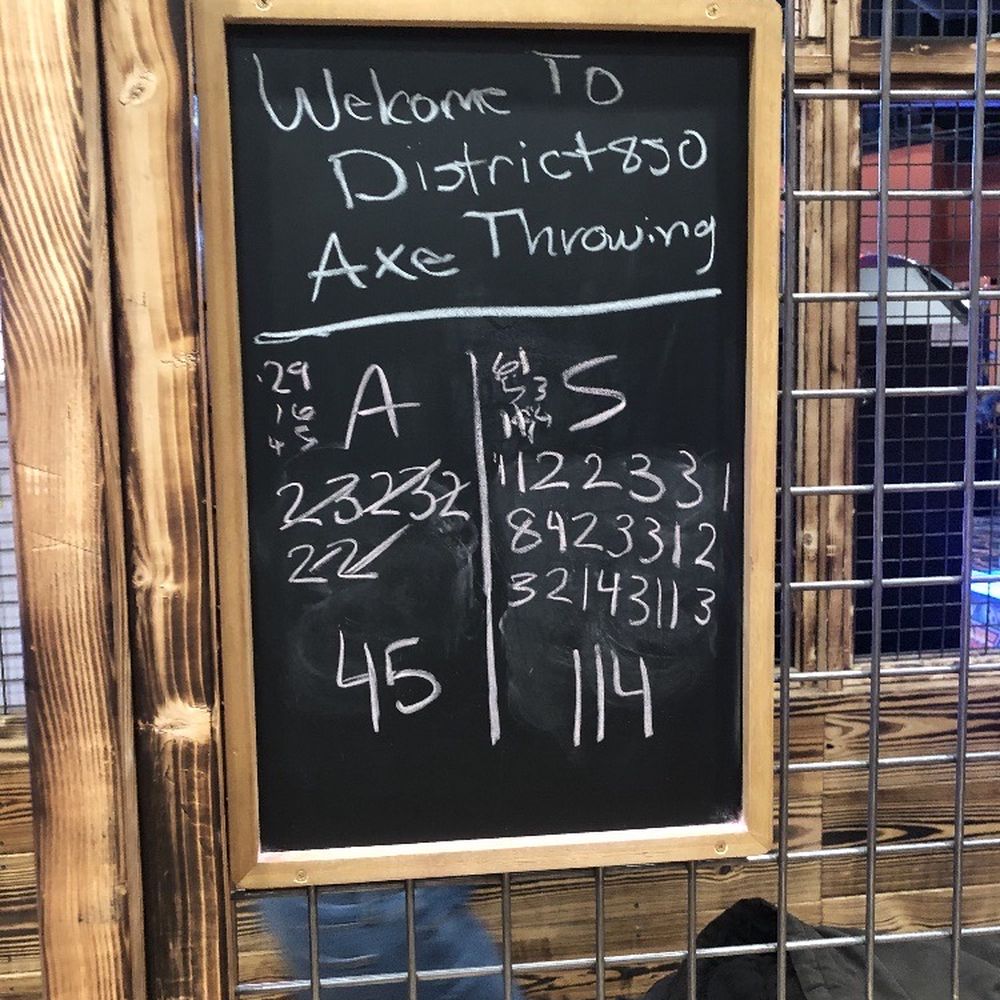 Welcome To
District 850
Axe Throwing
29
16
45
A
23232
22
45
61
53
114
S
1122331
8423312
32143113
114